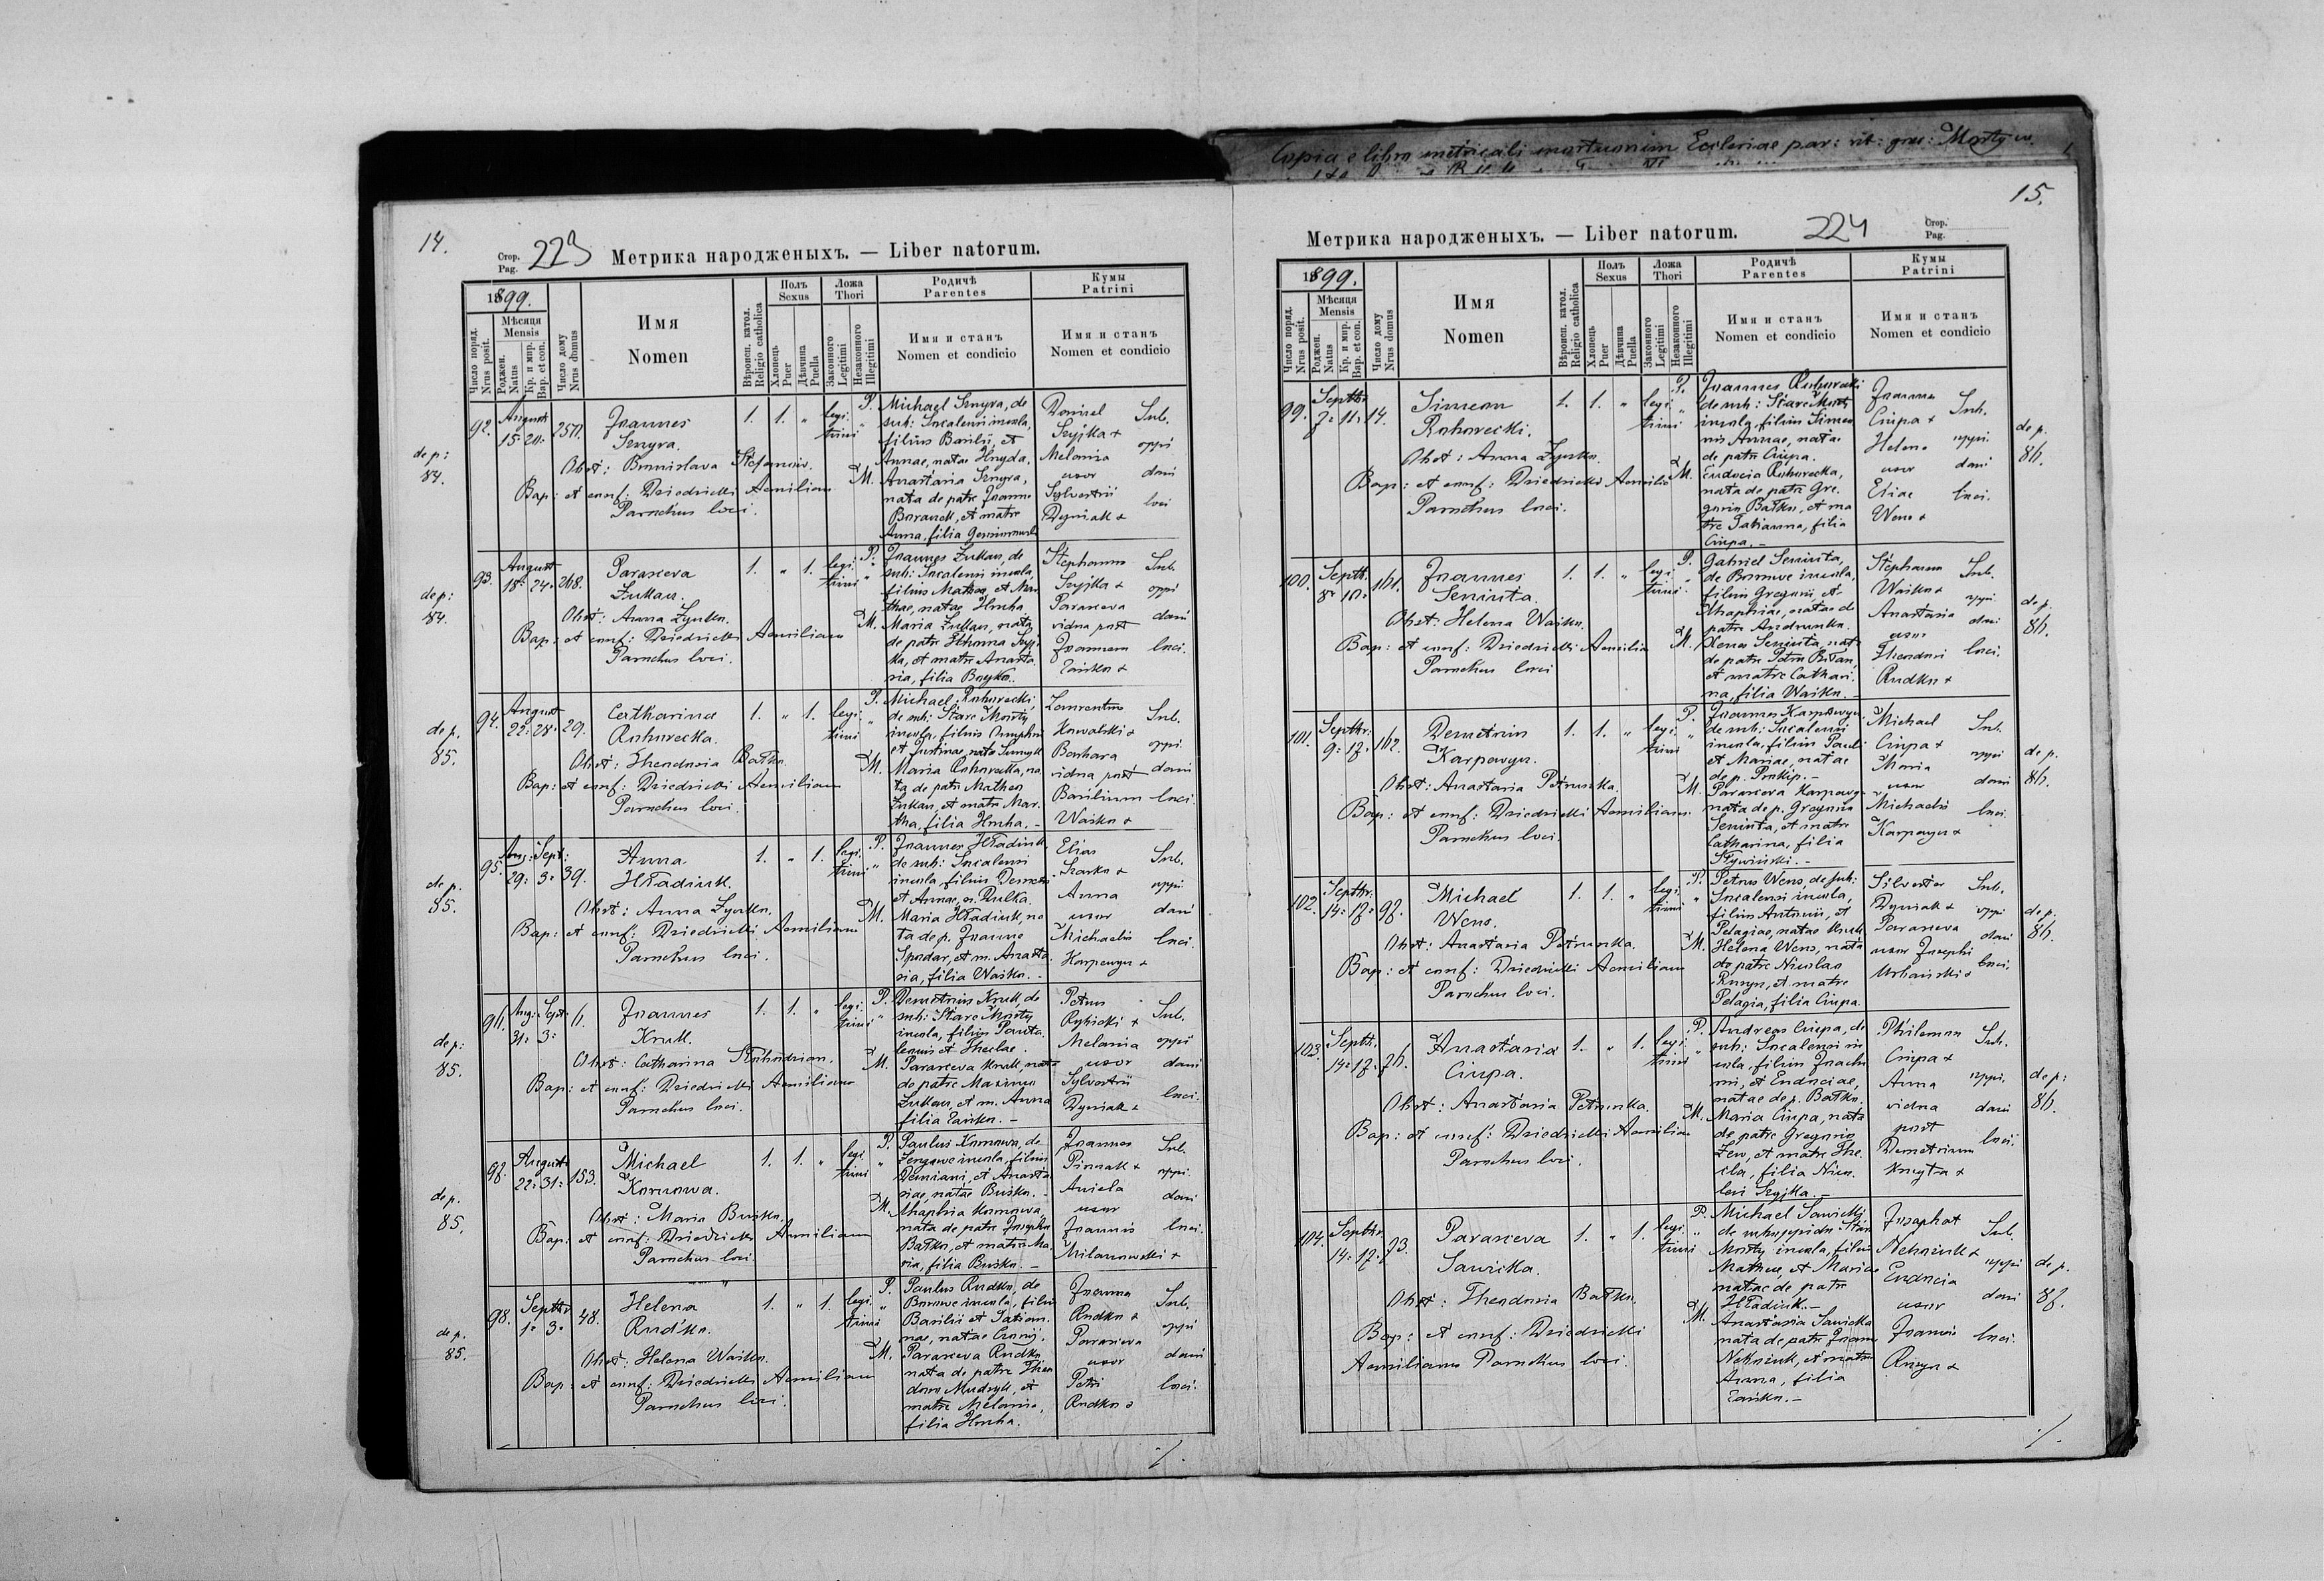 Copia e libro metricali mortuorum Ecclesiae par: rit: grae: Mosty w.
14.
Стор.
Pag.
223 Метрика народженыхъ. — Liber natorum.
1899.
Число поряд.
Nrus posit.
Мѣсяця
Mensis
Роджен.
Natus
Кр. и мир.
Bap. et con.
Число дому
Nrus domus
Имя
Nomen
Вѣроисп. катол.
Religio catholica
Полъ
Sexus
Хлопець
Puer
Дѣвчина
Puella
Ложа
Thori
Законного
Legitimi
Незаконного
Illegitimi
Родичѣ
Parentes
Имя и станъ
Nomen et condicio
Кумы
Patrini
Имя и станъ
Nomen et condicio
de p:
84.
92.
August
15. 20.
257.
Joannes
Smyra.
Obst: Bronislava Stefanów.
Bap: et conf: Dziedzicki Aemilian
Parochus loci.
1. 1. "
legi
timi
P. Michael Smyra, de
sub: Sucalensi incola,
filius Basilii, et
Annae, natae Hnyda.
M. Anastasia Smyra,
nata de patre Joanne
Boranek, et matre
Anna, filia
Daniel
Szyjka +
Melania
uxor
Sylvestri
Dyniak +
Sub.
oppi
dani
loci
de p:
84.
93.
August
18. 24.
268.
Parasceva
Żukau.
Obst: Anna Zyszko.
Bap: et conf: Dziedzicki Aemilianus
Parochus loci.
1. " 1.
legi.
timi
P. Joannes Żukau, de
sub: Sucalensi incola,
filius Mathei, et Mar
thae, natae Hmha
M. Maria Żukau, nata
de patre Thoma Szyj
ka, et matre Anasta
sia, filia Boyko.
Stephanus
Szyjka +
Parasceva
vidua post
Joannem
Zańko +
Sub.
oppi
dani
loci.
de p.
85.
94.
August
22. 28.
29.
Catharina
Rohowecka.
Obst: Theodosia Batko.
Bap: et conf: Dziedzicki Aemilianus
Parochus loci.
1. " 1.
legi.
timi
P. Michael Rohowecki,
de sub: Stare Mosty
incola, filius Onuphrii
et Justinae, nata
M. Maria Rohowecka, na
ta de patre Matheo
Żukau, et matre Mar.
tha, filia Hmha. –
Laurentius
Kowalski +
Barbara
vidua post
Basilium
Waśko +
Sub.
oppi
dani
loci.
de p.
85.
95.
Aug: Sept:
29. 3.
39.
Anna
Hładiuk.
Obst: Anna Zyszko.
Bap: et conf: Dziedzicki Aemilianus
Parochus loci.
1. " 1.
legi.
timi
P. Joannes Hładiuk
de sub: Sucalensi
incola, filius Demetri
et Annae, n. Rulka.
M. Maria Hładiuk, na
ta de p. Joanne
Spodar, et m. Anasta
sia, filia Waśko. –
Elias
Szarko +
Anna
uxor
Michaelis
Karpowycz +
Sub.
oppi
dani
loci.
de p:
85.
96.
Aug: Sept:
31. 3.
6.
Joannes
Kruk.
Obst: Catharina
Bap: et conf: Dziedzicki Aemilianus
Parochus loci.
1. 1. "
legi.
timi
P. Demetrius Kruk, de
sub: Stare Mosty
incola, filius Panta
lemis et Theclae.
M. Parasceva Kruk, nata
de patre Maximo
Żukau, et m. Anna
filia Zańko. –
Petrus
Rybicki +
Melania
uxor
Sylvestri
Dyniak +
Sub.
oppi
dani
loci.
de p.
85.
98.
August
22. 31.
153.
Michael
Konowa.
Obst: Maria Buśko.
Bap: et conf: Dziedzicki Aemilianus
Parochus loci.
1. 1. "
legi
timi
P. Paulus Konowa, de
incola, filius
Damiani, et Anasta
siae, natae Buśko. –
M. Ahaphia Konowa,
nata de patre Josepho
Batko, et matre Ma
ria, filia Buśko. –
Joannes
Pinnak +
Aniela
uxor
Joannis
Milanowski +
Sub.
oppi
dani
loci.
de p.
85.
98.
Septbr
1. 3.
48.
Helena
Rudko.
Obst: Helena Waśko.
Bap: et conf: Dziedzicki Aemilianus
Parochus loci.
1. " 1.
legi.
timi
P. Paulus Rudko, de
Borowe incola, filius
Basilii et Tatian.
nae, natae
M. Parasceva Rudko
nata de patre Theo
doro Mudryk, et
matre Melania,
filia Hmha.
Joannes
Rudko +
Parasceva
uxor
Petri
Rudko +
Sub.
oppi
dani
loci.
./.
15.
Метрика народженыхъ. — Liber natorum. 224
Стор.
Pag.
1899.
Число поряд.
Nrus posit.
Мѣсяця
Mensis
Роджен.
Natus
Кр. и мир.
Bap. et con.
Число дому
Nrus domus
Имя
Nomen
Вѣроисп. катол.
Religio catholica
Полъ
Sexus
Хлопець
Puer
Дѣвчина
Puella
Ложа
Thori
Законного
Legitimi
Незаконного
Illegitimi
Родичѣ
Parentes
Имя и станъ
Nomen et condicio
Кумы
Patrini
Имя и станъ
Nomen et condicio
99.
Septbr.
7. 11.
14.
Simeon
Rohowecki.
Obst: Anna Zyszko.
Bap: et conf: Dziedzicki Aemilia
Parochus loci.
1. 1. "
legi.
timi
P. Joannes Rohowecki
de sub: Stare Mosty
incola, filius Simeo
nis Annae, natae
de patre Ciupa.
M. Eudocia Rohowecka,
nata de patre Gre
gorio Batko, et ma
tre Tatianna, filia
Ciupa. –
Joannes
Ciupa +
Helena
uxor
Eliae
Wens +
Sub.
oppi.
dani
loci.
de p.
86.
100.
Septb.
8. 10.
161.
Joannes
Seniuta.
Obst: Helena Waśko.
Bap: et conf: Dziedzicki Aemilia
Parochus loci
1. 1. "
legi.
timi.
P. Gabriel Seniuta,
de Borowe incola,
filius Gregorii, et
Ahaphiae, natae de
patre Andrunko.
M. Xenia Seniuta, nata
de patre Petro
et matre Cathari.
na, filia Waśko. –
Stephanus
Waśko +
Anastasia
uxor
Theodori
Rudko +
Sub.
oppi.
dani
loci.
de p.
86.
101.
Septbr.
9. 17.
162.
Demetrius
Karpowycz.
Obst: Anastasia Petrunka.
Bap: et conf: Dziedzicki Aemilianus.
Parochus loci.
1. 1. "
legi.
timi
P. Joannes Karpowycz,
de sub: Sucalensi
incola, filius Pauli
et Mariae, natae
de p. Prokip. –
M. Parasceva Karpowycz
nata de p. Gregorio
Seniuta, et matre
Catharina, filia
Sływiński. –
Michael
Ciupa +
Maria
uxor
Michaelis
Karpowycz +
Sub.
oppi
dani
loci.
de p.
86.
102.
Septbr.
14. 17.
97.
Michael
Wens.
Obst: Anastasia Petrunka.
Bap: et conf: Dziedzicki Aemilianus
Parochus loci.
1. 1. "
legi.
timi
P. Petrus Wens, de sub:
Sucalensi incola,
filius Antonii, et
Pelagiae, natae Kruk
M. Helena Wens, nata
de patre Nicolao
et matre
Pelagia, filia Ciupa.
Silvester
Dyniak +
Parasceva
uxor Josephi
Urbański +
Sub.
oppi
dani
loci.
de p.
86.
103.
Septb.
14. 17.
76.
Anastasia
Ciupa.
Obst: Anastasia Petrunka.
Bap: et conf: Dziedzicki Aemilian
Parochus loci.
1. " 1.
legi
timi
P. Andreas Ciupa, de
sub: Sucalensi in
cola, filius Joachi
mi, et Eudociae,
natae de p. Batko.
M. Maria Ciupa, nata
de patre Gregorio
Lew, et matre The
cla, filia Nico.
lai Szyjka. –
Philemon
Ciupa +
Anna
vidua
post
Demetrium
Knyta +
Sub.
oppi.
dani
loci.
de p:
86.
104.
Septbr
14. 17.
73.
Parasceva
Sawicka.
Obst: Theodosia Batko.
Bap: et conf: Dziedzicki
Aemilianus Parochus loci.
1. " 1.
legi.
timi
P. Michael Sawicki
de suburbio Stare
Mosty incola, filius
Mathei, et Mariae
natae de patre
Hładiuk. –
M. Anastasia Sawicka
nata de patre Joanne
Nekniuk, et matre
Anna, filia
Zańko. –
Josaphat
Nekniuk +
Eudocia
uxor
Joannis
Sub.
oppi
dani
loci.
de p.
87.
./.